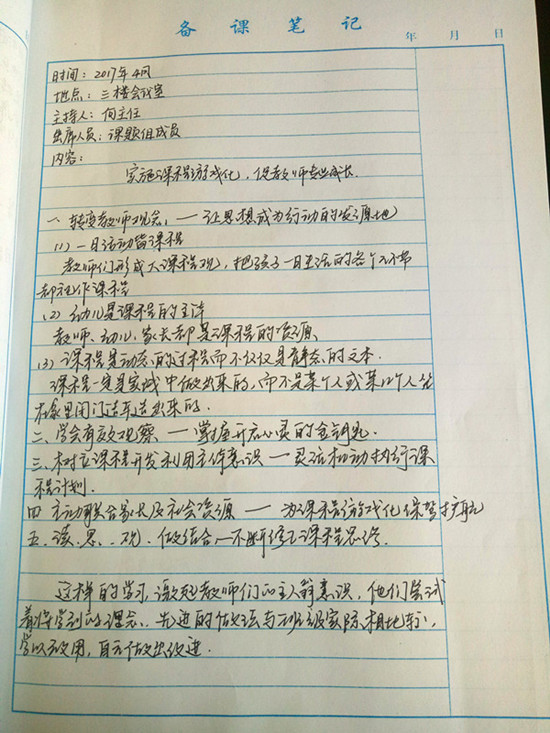 备课笔记
年 月 日
时间：2017年4月
地点：三楼会议室
主持人：何主任
出席人员：课题组成员
内容：
实施课程游戏化，促教师专业成长.
一、转变教师观念，—让思想成为行动的发源地
(1) 一日活动皆课程
教师们形成大课程观，把孩子一日生活的各个环节
都视作课程
(2) 幼儿是课程的主体
教师、幼儿、家长都是课程的资源
(3) 课程是动态的过程而不仅仅是静态的文本.
课程一定是实践中做出来的，而不是某个人或某几个人坐
在家里闭门造车造出来的.
二、学会有效观察 — 掌握开启心灵的金钥匙.
三、树立课程开发利用主体意识 — 灵活机动执行课
程计划.
四 主动联合家长及社会资源 — 为课程游戏化保驾护航
五、读、思、观、做结合，不断修正课程
这样的学习，激起教师们的主人翁意识，他们尝试
着将学到的理念、先进的做法与班级实际相
学以致用，自 做出改进.